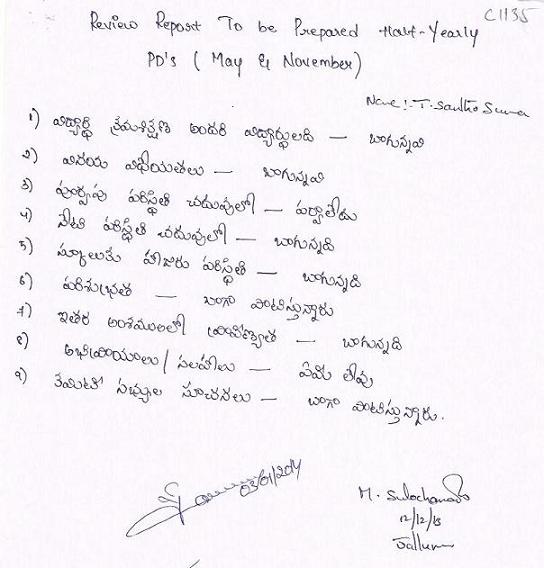 C1135
Review Report To be Prepared Half-Yearly
PD's ( May & November)
Name :- T. Santho Suma
1) విద్యార్థి క్రమశిక్షణ అందరి విద్యార్థులది — బాగున్నవి
2) వినయ విధేయతలు — బాగున్నవి
3) పూర్వపు పరిస్థితి చదువులో — పర్వాలేదు
4) నేటి పరిస్థితి చదువులో — బాగున్నది
5) స్కూలుకు హాజరు పరిస్థితి — బాగున్నది
6) పరిశుభ్రత — బాగా పాటిస్తున్నారు
7) ఇతర అంశములలో ప్రావీణ్యత — బాగున్నది
8) అభిప్రాయాలు / సలహాలు — ఏమీ లేవు
9) కమిటీ సభ్యుల సూచనలు — బాగా పాటిస్తున్నారు.
03/01/2014
M. Sulochana
12/12/13